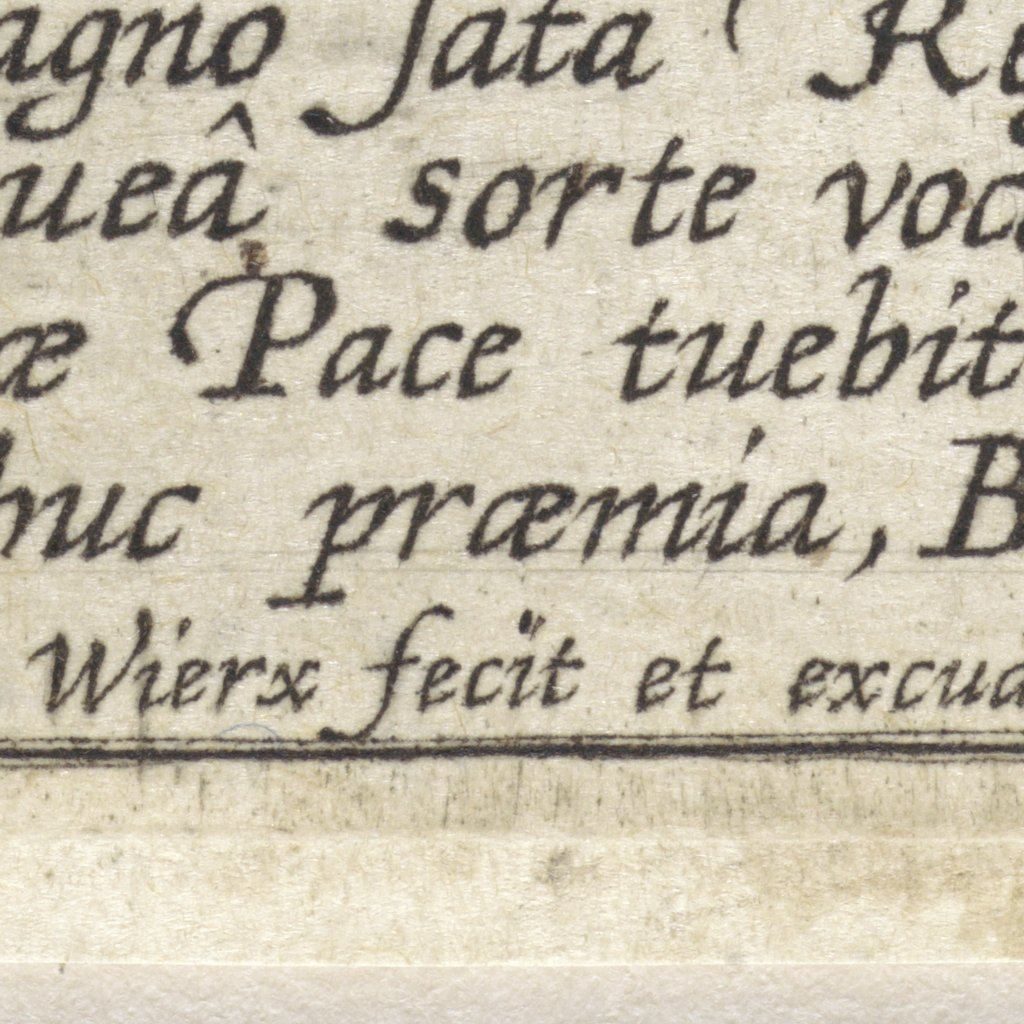 agno ſata ( Re
ueâ sorte voca
æ Pace tuebit
huc præmia, B
Wierx fecit et excud